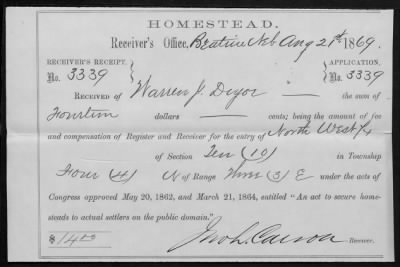 HOMESTEAD.
Receiver's Office, Beatrice Neb Aug 21st 1869.
RECEIVER'S RECEIPT, APPLICATION,
No. 3339 No. 3339
RECEIVED of Warren J. the sum of
Fourteen dollars cents; being the amount of fee
and compensation of Register and Receiver for the entry of North West ¼
of Section Ten (10) in Township
Four (4) N of Range Three (3) E under the acts of
Congress approved May 20, 1862, and March 21, 1864, entitled "An act to secure home-
steads to actual settlers on the public domain."
$14.00 Jno L. Carson Receiver.